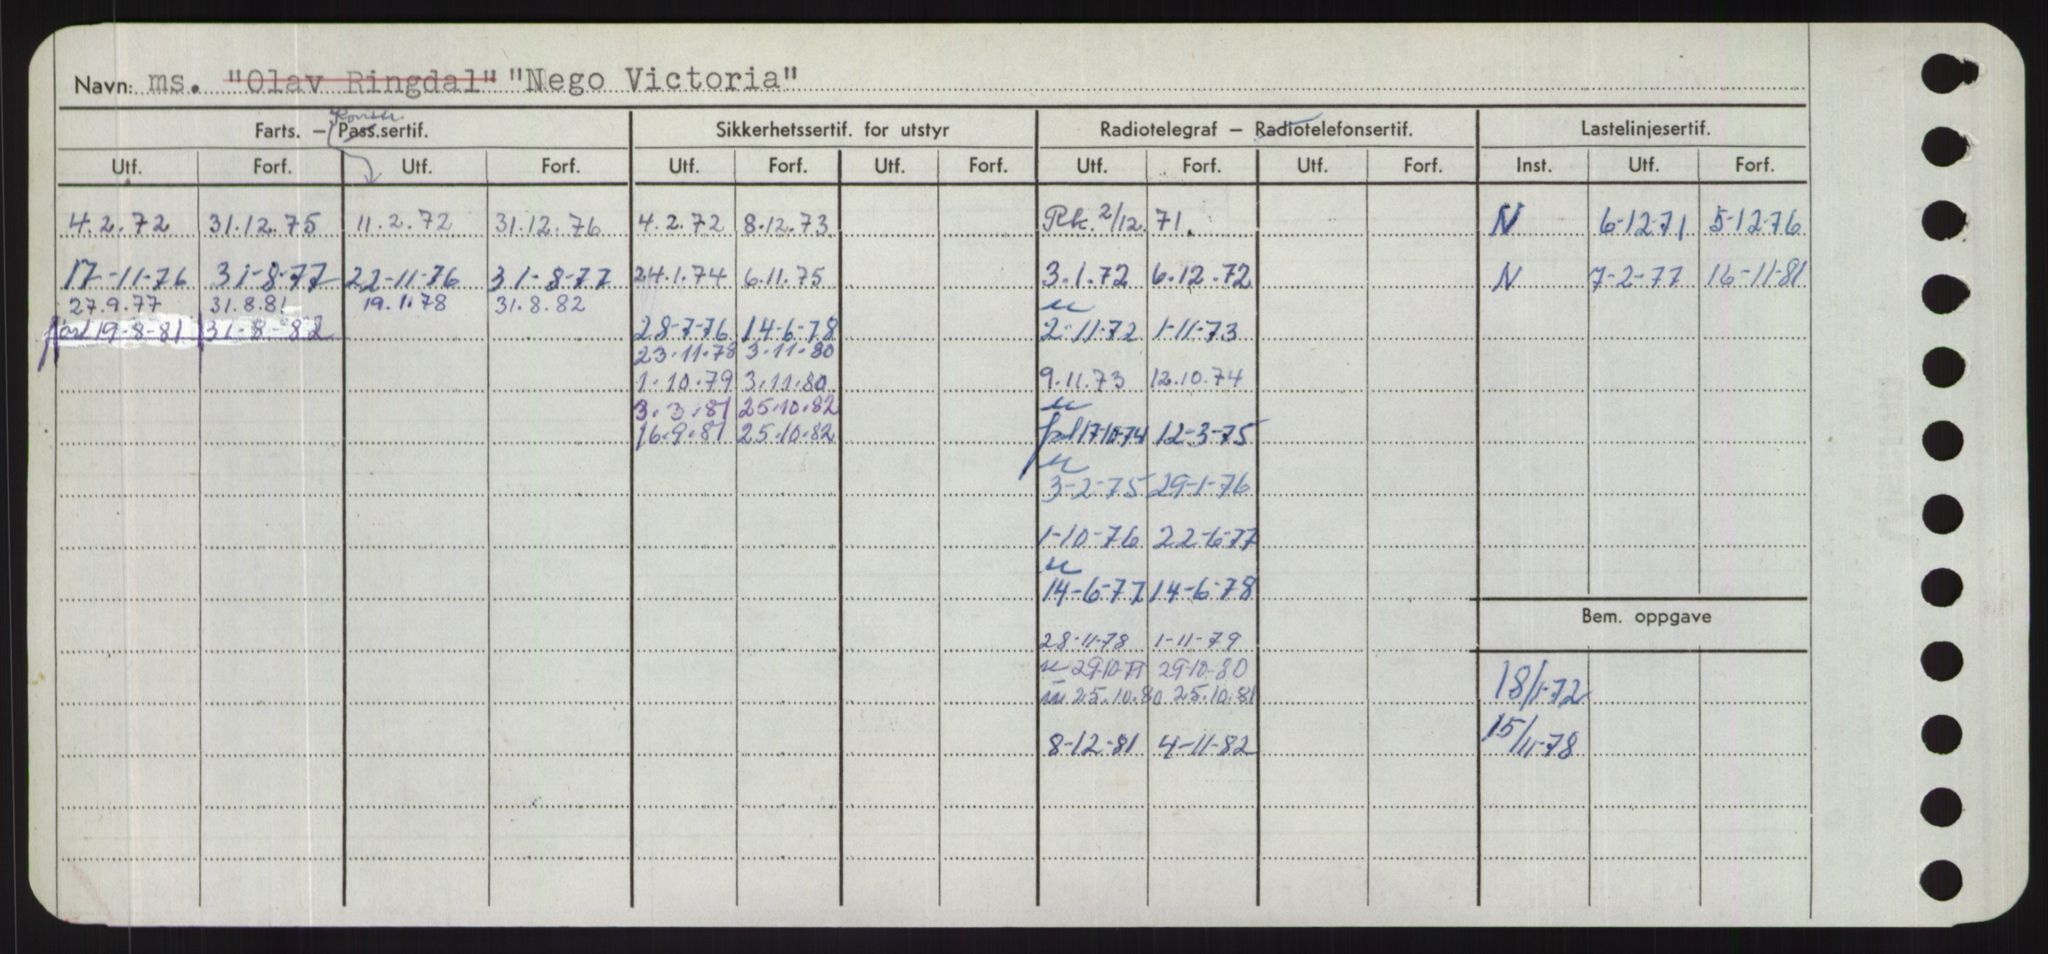 Navn: ms. "Olav Ringdal" "Nego Victoria"
Konstr.
Farts. – Pass.sertif. Sikkerhetssertif. for utstyr Radiotelegraf – Radiotelefonsertif. Lastelinjesertif.
Utf. Forf. Utf. Forf. Utf. Forf. Utf. Forf. Utf. Forf. Utf. Forf. Inst. Utf. Forf.
4.2.72 31.12.75 11.2.72 31.12.76 4.2.72 8.12.73 Rk. 2/12.71. N 6-12-71 5-12-76
17-11-76 31-8-77 22-11-76 31-8-77 24.1.74 6.11.75 3.1.72 6.12.72 N 7-2-77 16-11-81
27.9.77 31.8.81 19.1.78 31.8.82
forl 19-8-81 31-8-82 28-7-76 14-6-78 2-11-72 1-11-73
23.11.78 3.11.80
1.10.79 3.11.80 9.11.73 12.10.74
3.3.81 25.10.82
16.9.81 25.10.82 forl 17-10-74 12-3-75
3-2-75 29-1-76
1-10-76 22-6-77
14-6-77 14-6-78
Bem. oppgave
28-11-78 1-11-79
29-10-79 29-10-80
25.10.80 25.10.81
18/1-72
8-12-81 4-11-82
15/11-78